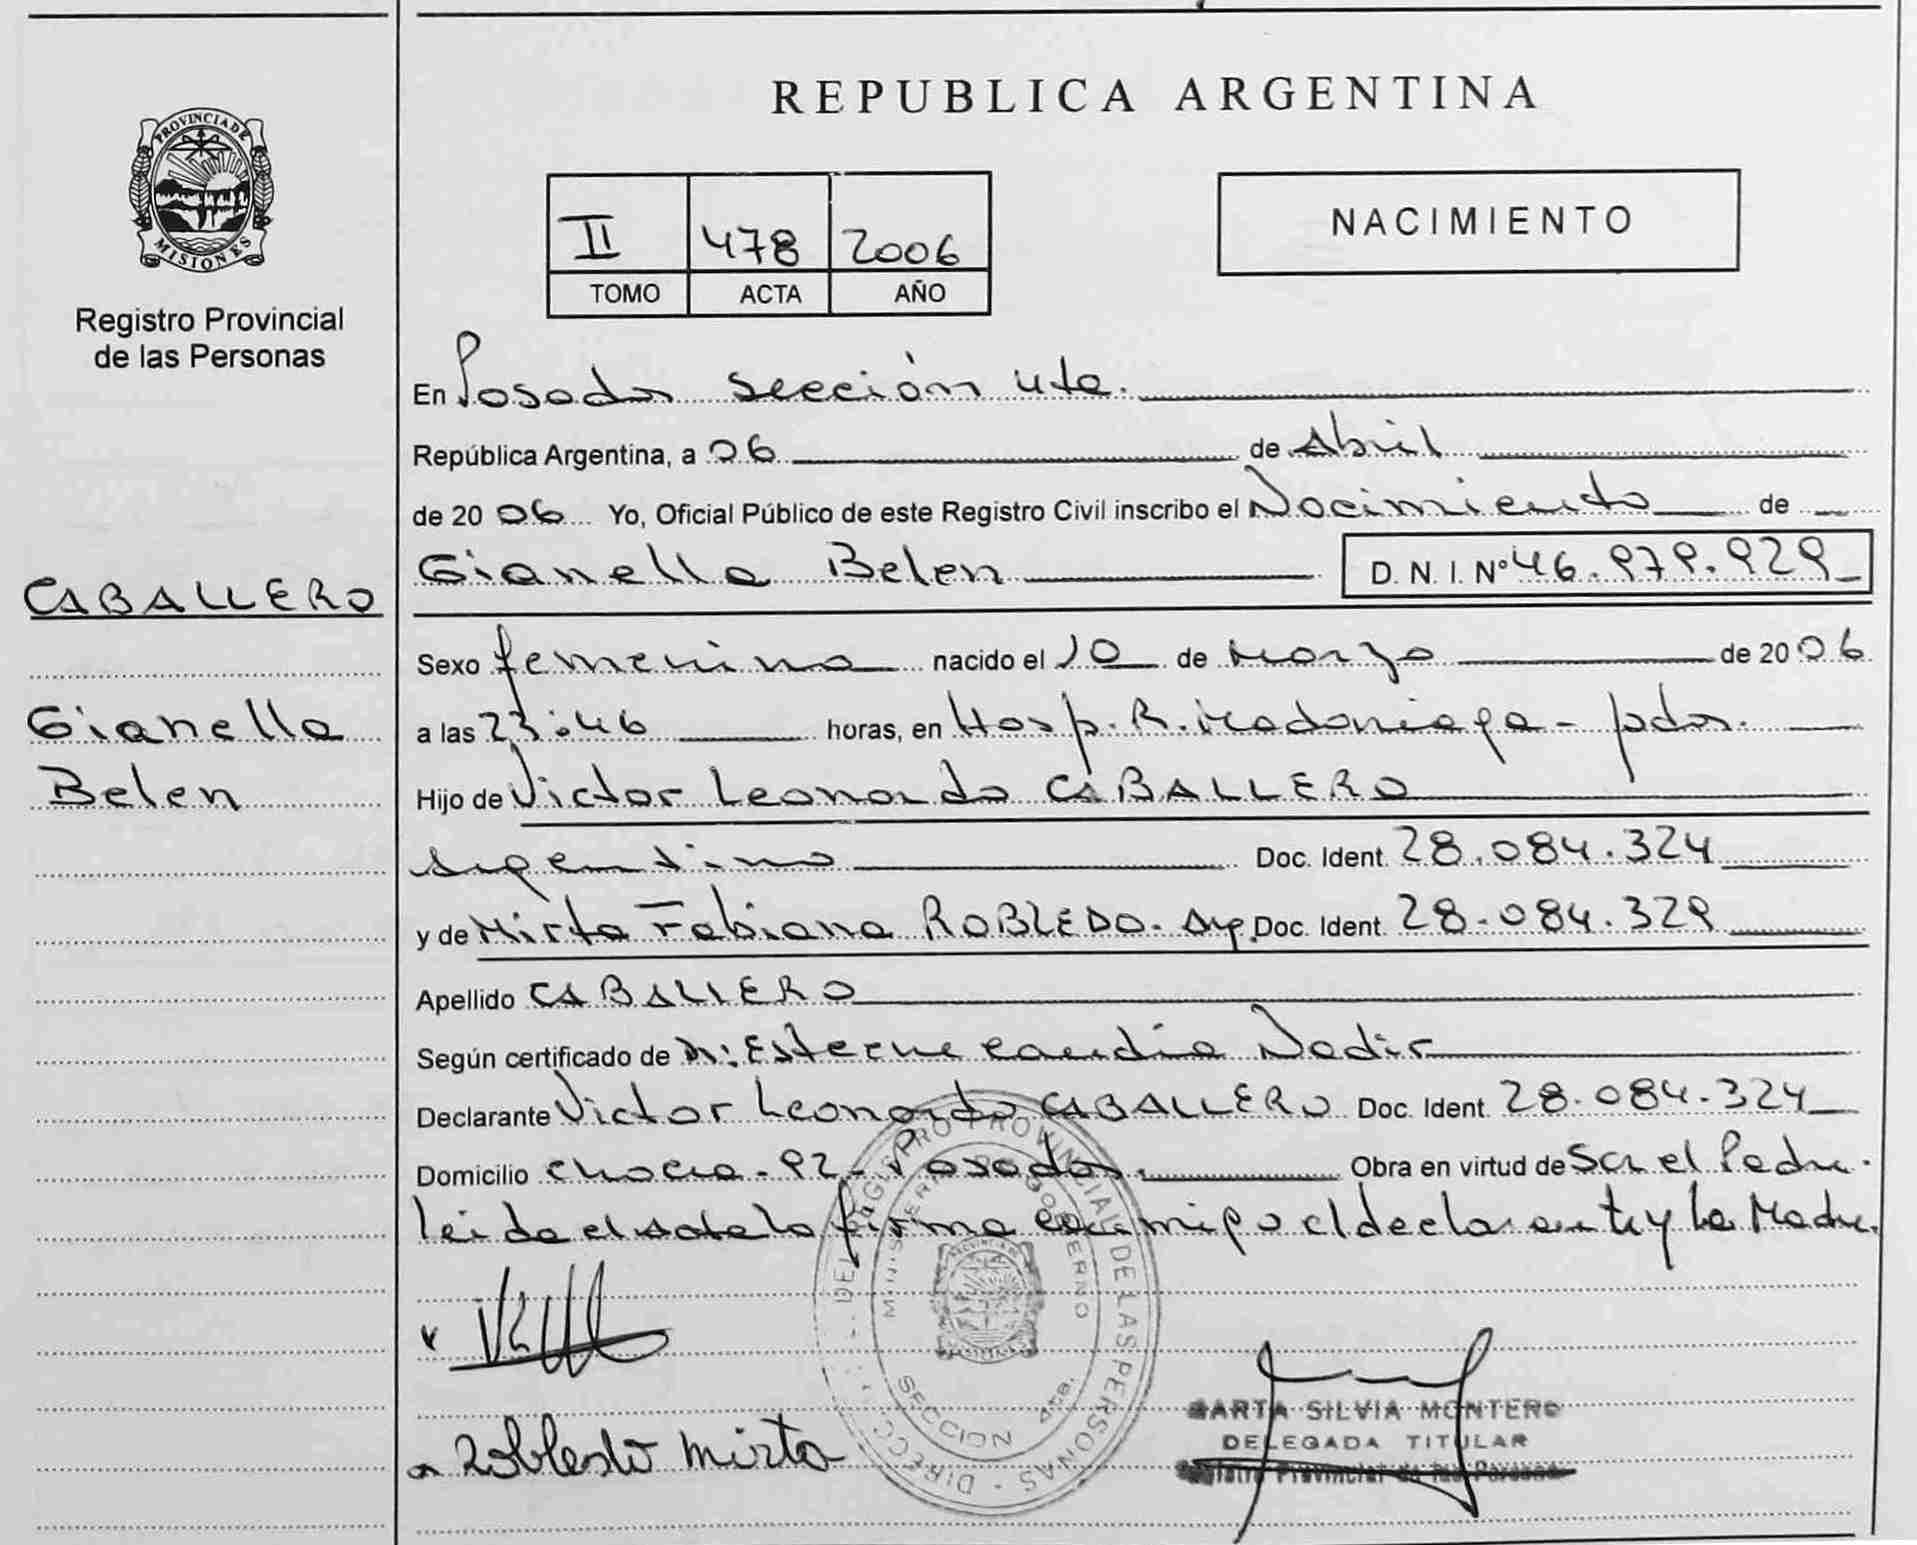 REPUBLICA ARGENTINA
PROVINCIA DE MISIONES
Registro Provincial
de las Personas
II 478 2006
TOMO ACTA AÑO
NACIMIENTO
En Posadas sección 4ta.
República Argentina, a 06 de Abril
de 2006 Yo, Oficial Público de este Registro Civil inscribo el Nacimiento de
Gianella Belen D.N.I. Nº 46.979.929
CABALLERO
Gianella
Belen
Sexo femenino nacido el 10 de Marzo de 2006
a las 23:46 horas, en Hosp. R. Madariaga - pdas.
Hijo de Victor Leonardo CABALLERO
Argentino Doc. Ident. 28.084.324
y de Mirta Fabiana ROBLEDO. Arg. Doc. Ident. 28.084.329
Apellido CABALLERO
Según certificado de Nadir
Declarante Victor Leonardo CABALLERO Doc. Ident. 28.084.324
Domicilio - 92 - Posadas. Obra en virtud de Ser el Padre.
Leida el Acta la firma conmigo el declarante y la Madre.
DIRECC. DEL REGISTRO PROVINCIAL DE LAS PERSONAS
MINISTERIO DE GOBIERNO
SECCION 4ta.
Robledo Mirta
MARTA SILVIA MONTERO
DELEGADA TITULAR
Registro Provincial de las Personas